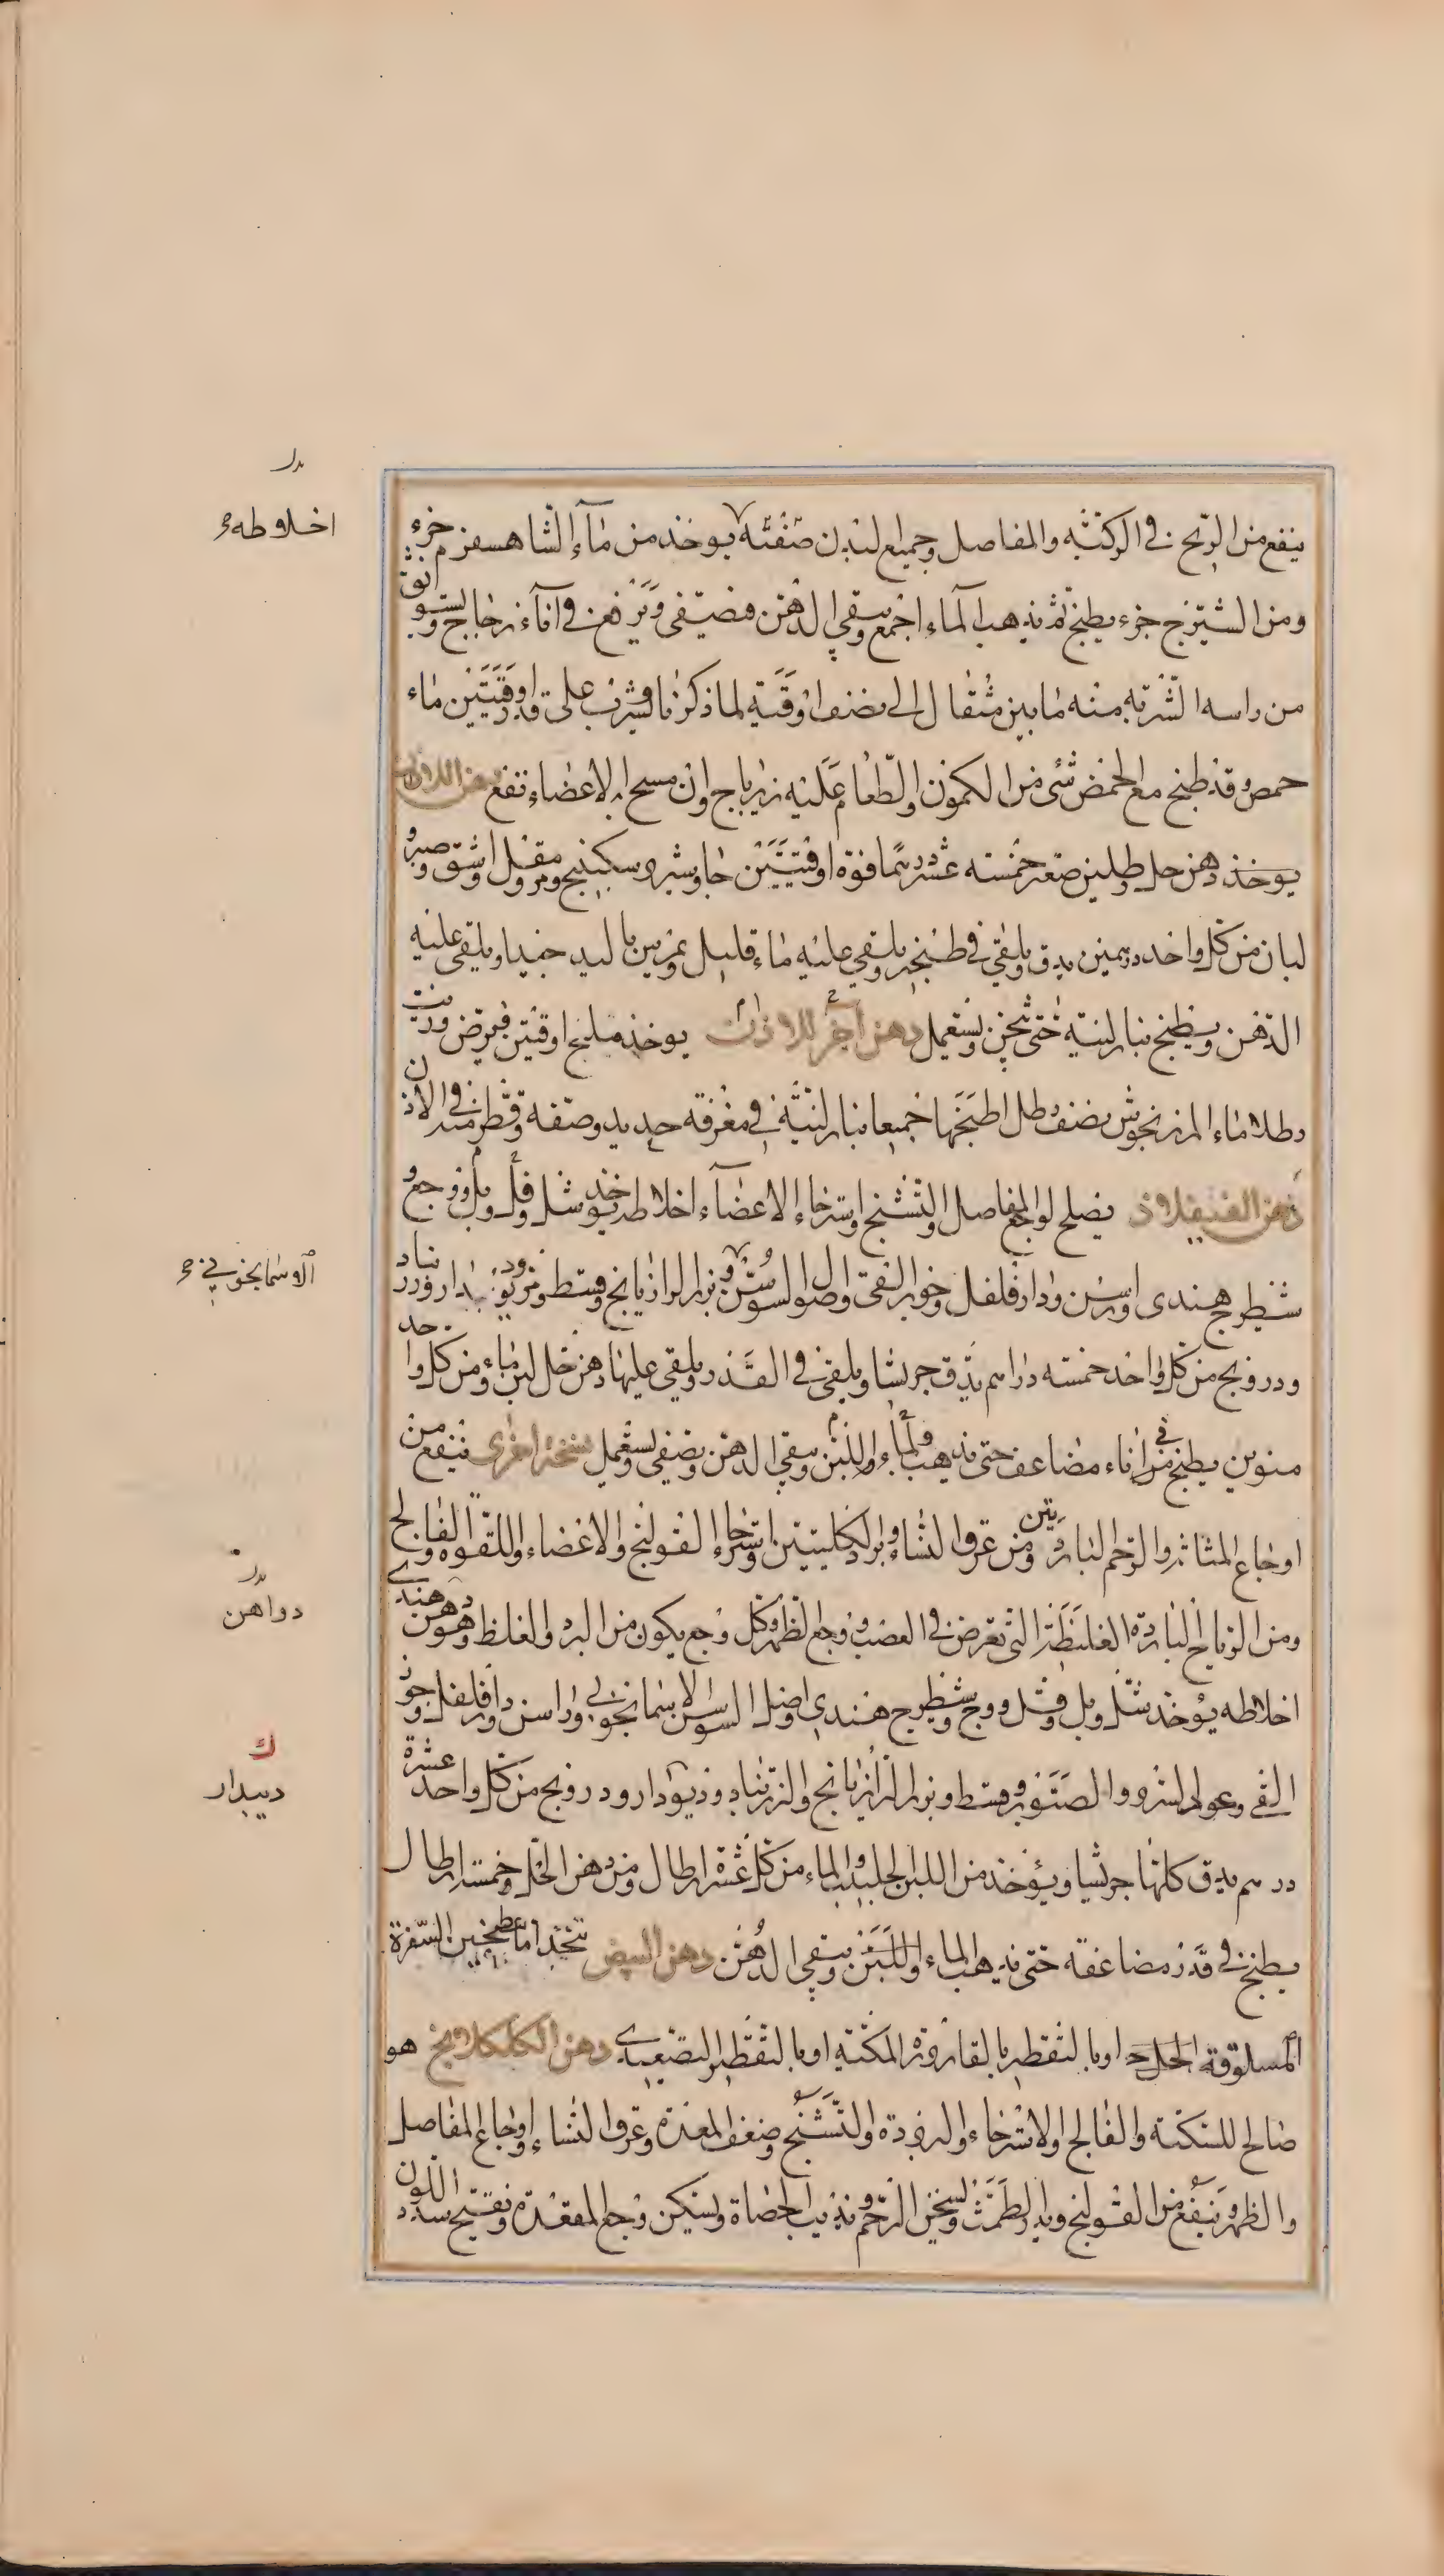 ينفع من الريح في الركبة والمفاصل وجميع البدن صفته يوخذ من ماء الشاهسفرم جزء
ومن الشيرج جزء يطبخ ثم يذهب الماء اجمع ويبقى الدهن فيصفى ويرفع في اناء زجاج ويستوثق
من راسه الشربة منه ما بين مثقال الى نصف اوقية لما ذكرنا ويشرب على قدر اوقيتين ماء
حمص وقد طبخ مع الحمص شئ من الكمون والطعام عليه زيرباج وان مسح به الاعضاء نفع دهن للاذن
يوخذ دهن حل رطلين صعتر خمسة عشر درهما فوة اوقيتين جاوشير وسكبينج ومر ومقل واشق وصبر و
لبان من كل واحد درهمين يدق ويلقى في طنجير ويلقى عليه ماء قليل ويمرس باليد جيدا ويلقى عليه
الدهن ويطبخ بنار لينة حتى يثخن ويستعمل دهن آخر للاذن يوخذ مليح اوقيتين فيرض وزيت
رطلا ماء المرزنجوش نصف رطل اطبخها جميعا بنار لينة في مغرفة حديد وصفه وقطر منه في الاذن
دهن الفنيقلاذ يصلح لوجع المفاصل والتشنج واسترخاء الاعضاء اخلاطه يوخذ شل وفل وبل ووج وجع و
شيطرج هندى وراسن ودارفلفل وجوز القئ واصول السوسن وبزر الرازيانج وقسط وزرنباد وديودار ودر
ودرونج من كل واحد خمسة دراهم يدق جريشا ويلقى في القدر ويلقى عليها دهن خل لبن ماء ومن كل واحد
منوين يطبخ في اناء مضاعف حتى يذهب الماء واللبن ويبقى الدهن ويصفى ويستعمل نسخة اخرى ينفع من
اوجاع المثانة والرحم الباردتين ومن عرق النساء وبرد الكليتين واسترخاء القولنج والاعضاء واللقوة والفالج
ومن الرياح الباردة الغليظة التي تعرض في العصب ووجع الظهر وكل وجع يكون من البرد والغلظ وهو دهن هندى
اخلاطه يوخذ شل وبل وفل ووج وشيطرج هندى واصل السوسن الاسمانجوني وراسن ودارفلفل وجوز
القئ وعود السرو والصنوبر وقسط وبزر الرازيانج والزرنباد وذيودار ودرونج من كل واحد عشرة
درهم يدق كلها جريشا ويؤخذ من اللبن الحليب والماء من كل عشرة ارطال ومن دهن الخل وخمسة ارطال
يطبخ في قدر مضاعفة حتى يذهب الماء واللبن ويبقى الدهن دهن البيض يتخذ اما بطجين السفرة
المسلوقة الحل اوبالتقطير بالقارورة المكبة اوبالتقطير التصعيدى دهن الكلكلانج هو
صالح للسكتة والفالج والاسترخاء والبرودة والتشنج وضعف المعدة وعرق النساء واوجاع المفاصل
والظهر وينفع من القولنج ويدر الطمث ويسخن الرحم ويذيب الحصاة ويسكن وجع المقعدة ويفتح سدد اللون
اخلاطه
الاسمانجوني
دواهن
ديبدار